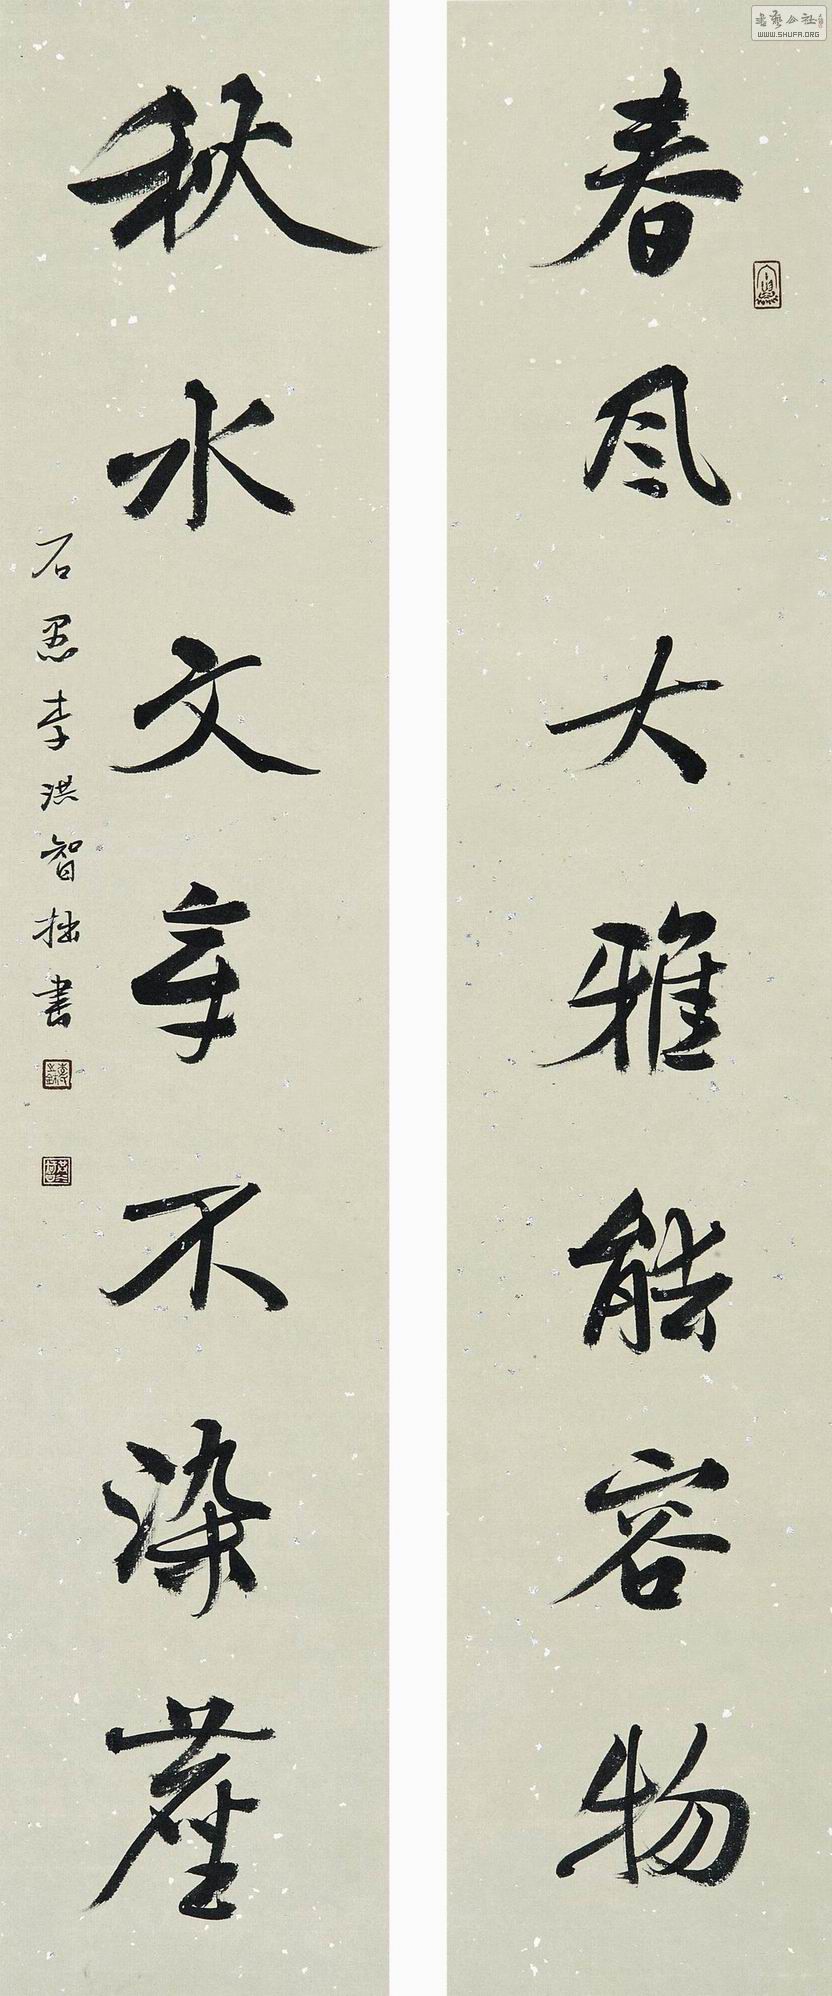 春风大雅能容物
秋水文章不染尘
石愚李洪智拙书
书艺公社
WWW.SHUFA.ORG